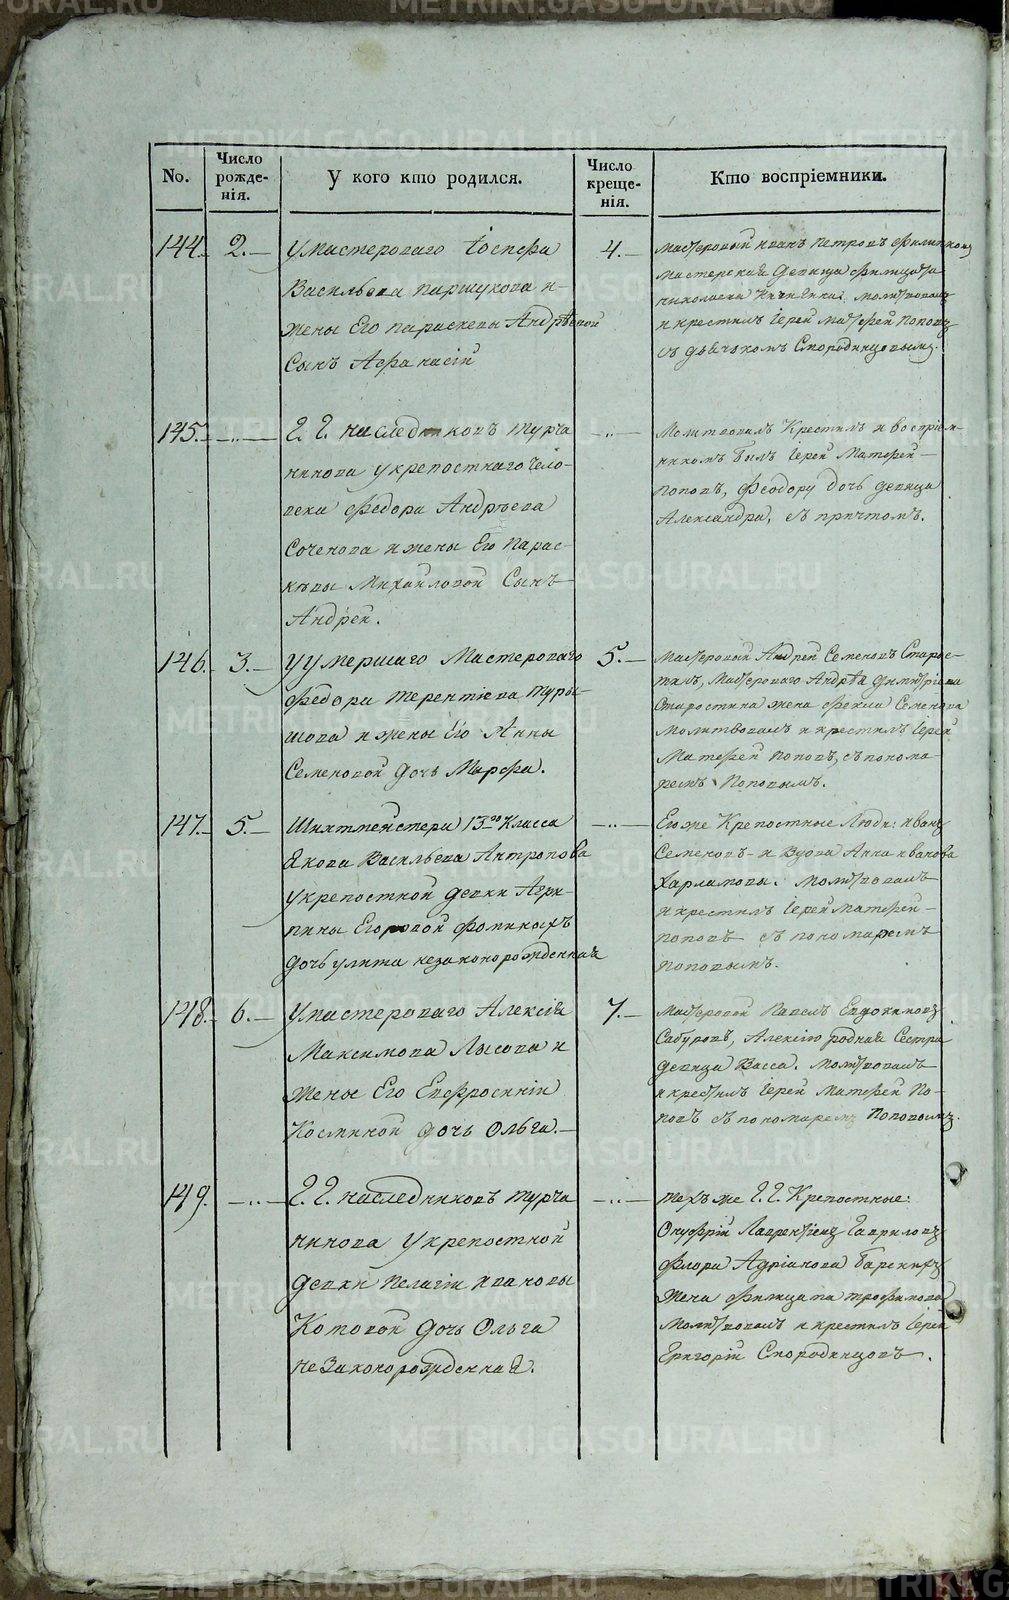 METRIKI.GASO-URAL.RU
No.
Число рожденія.
У кого кто родился.
Число крещенія.
Кто воспріемники.
144. 2.
У мастероваго Іосифа
Васильева Паршукова и
жены Его Параскевы Андрѣевой
Сынъ Афанасій
4.
Мастеровый Иванъ Петровъ
Мастерская девица Фелицата
Николаева молитвовалъ
и крестилъ Іерей Матфей Поповъ
съ дьячкомъ Смородинцовымъ.
145. — „ —
Г. Г. наследниковъ Турча
нинова у крепостнаго чело-
века Федора Андреева
Соченова и жены Его Парас-
кевы Михайловой Сынъ
Андрей.
— „ —
Молитвовалъ Крестилъ и воспріем-
никомъ былъ Іерей Матфей
Поповъ, Феодору дочь девица
Александра, съ причтомъ.
146. 3.
У умершаго Мастероваго
Федора Терентіева Туры-
шова и жены Его Анны
Семеновой дочь Марфа.
5.
Мастеровый Андрей Семеновъ Старос-
тинъ, Мастероваго Андрея Дмитріева
Старостина жена Фекла Семенова
молитвовалъ и крестилъ Іерей
Матфей Поповъ, съ понома
ремъ Поповымъ.
147. 5.
Шихтмейстера 13го Класса
Якова Васильева Антропова
у крепостной девки Агри-
пины Егоровой Фоминыхъ
дочь улита незаконорожденная
— „ —
Его же Крепостные Люди: Иванъ
Семеновъ и Вдова Анна Иванова
Харламовы. молитвовалъ
и крестилъ Іерей Матфей
Поповъ съ пономаремъ
Поповымъ.
148. 6.
У мастероваго Алексія
Максимова Лысова и
жены Его Евфросиніи
Косминой дочь Ольга.
7.
Мастеровой Павелъ Евдокимовъ
Сабуровъ, Алексію родная Сестра
девица Васса. молитвовалъ
и крестилъ Іерей Матфей По-
повъ съ пономаремъ Поповымъ.
149. — „ —
Г. Г. наследниковъ Турча
нинова у крепостной
девки Пелагіи Ивановы
Котовой дочь Ольга
незаконорожденная.
— „ —
техъ же Г. Г. Крепостные:
Онуфрій Лаврентіевъ Гавриловъ
Флора Адріанова Барскихъ
жена Фелицата Трофимова
молитвовалъ и крестилъ Іерей
Григорій Смородинцовъ.